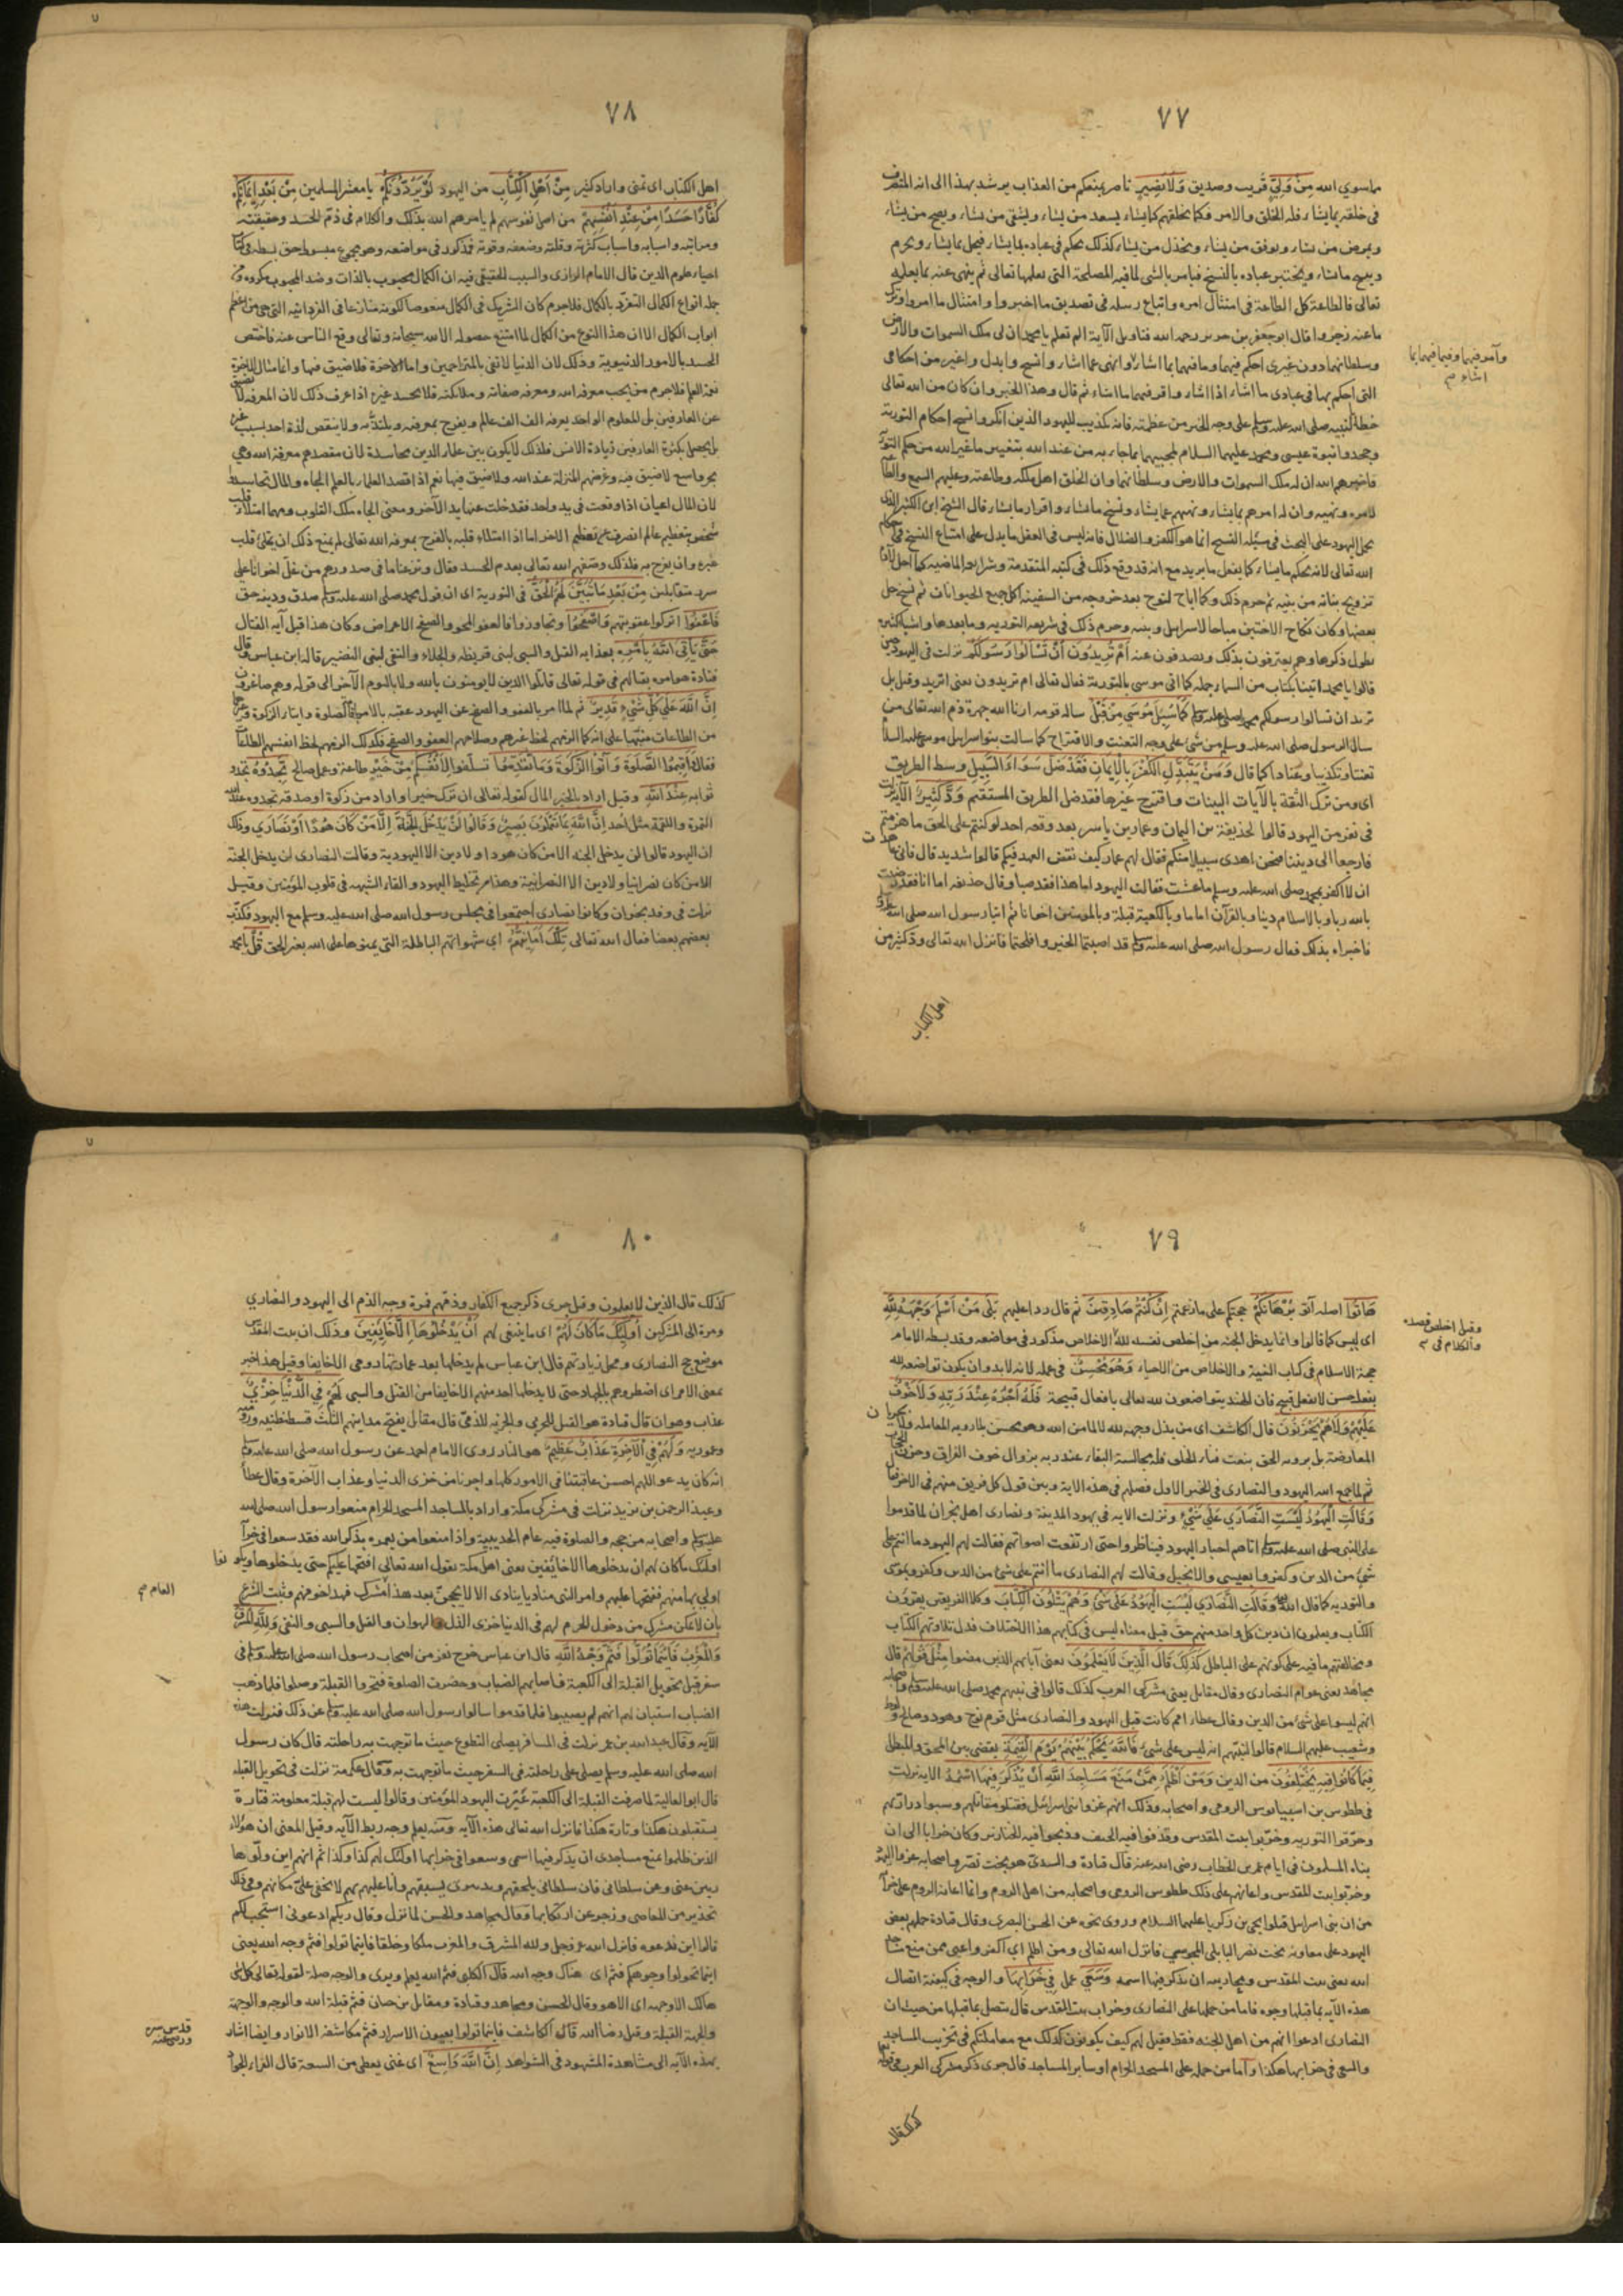 ٧٧
ما سوى الله مِنْ وَلِيٍّ قريب وصديق وَلَا نَصِيرٍ ناصر يمنعكم من العذاب يرشد بهذا الى انه المتصرف
فى خلقه بما يشاء فله الخلق والامر فكما يخلقهم كما يشاء يسعد من يشاء ويشقى من يشاء ويصح من يشاء
ويمرض من يشاء ويوفق من يشاء ويخذل من يشاء كذلك يحكم فى عباده بما يشاء فيحل ما يشاء ويحرم
ويبيح ما يشاء ويختبر عباده بالنسخ فيامر بالشى لما فيه المصلحة التى يعلمها تعالى ثم ينهى عنه بما يعلمه
تعالى فالطاعة كل الطاعة فى امتثال امره واتباع رسله فى تصديق ما اخبروا وامتثال ما امروا وترك
ما عنه زجروا قال ابو جعفر بن جرير رحمه الله فتاويل الآية الم تعلم يا محمد ان لى ملك السموات والارض
وسلطانهما دون غيرى احكم فيهما وما فيهما بما اشاء وانهى عما اشاء وانسخ وابدل واغير من احكامى
وآمر فيهما وفيما فيهما بما
اشاء صح
التى احكم بها فى عبادى ما اشاء اذا اشاء واقر فيهما ما اشاء ثم قال وهذا الخبر وان كان من الله تعالى
خطابا لنبيه صلى الله عليه وسلم على وجه الخبر من عظمته فانه تكذيب لليهود الذين انكروا نسخ احكام التورية
وجحدوا نبوة عيسى ومحمد عليهما السلام لمجيئهما بما جاءا به من عند الله بتغيير ما غير الله من حكم التورية
فاخبرهم الله ان له ملك السموات والارض وسلطانهما وان الخلق اهل ملكه وطاعته وعليهم السمع والطاعة
لامره ونهيه وان له امرهم بما يشاء ونهيهم عما يشاء ونسخ ما يشاء واقرار ما يشاء قال الشيخ ابن الكثير الذى
يحمل اليهود على البحث فى مسئلة النسخ انما هو الكفر والضلال فانه ليس فى العقل ما يدل على امتناع النسخ فى احكام
الله تعالى لانه يحكم ما يشاء كما يفعل ما يريد مع انه قد وقع ذلك فى كتبه المتقدمة وشرايعه الماضيه كما احل لآدم
تزويج بناته من بنيه ثم حرم ذلك وكما اباح لنوح بعد خروجه من السفينة اكل جميع الحيوانات ثم نسخ حل
بعضها وكان نكاح الاختين مباحا لاسرائيل وبنيه وحرم ذلك فى شريعة التوريه وما بعدها واشياء كثيرة
يطول ذكرها وهم يعترفون بذلك ويصدفون عنه أَمْ تُرِيدُونَ أَنْ تَسْأَلُوا رَسُولَكُمْ نزلت فى اليهود حين
قالوا يا محمد ائتنا بكتاب من السماء جمله كما اتى موسى بالتورية فقال تعالى ام تريدون يعنى اتريد وقيل بل
تريدون ان تسالوا رسولكم محمدا صلى الله عليه وسلم كَمَا سُئِلَ مُوسَى مِنْ قَبْلُ ساله قومه ارنا الله جهرة ذم الله تعالى من
سال الرسول صلى الله عليه وسلم من شئ على وجه التعنت والاقتراح كما سالت بنو اسرائيل موسى عليه السلام
تعنتا وتكذيبا وعنادا كما قال وَمَنْ يَتَبَدَّلِ الْكُفْرَ بِالْإِيمَانِ فَقَدْ ضَلَّ سَوَاءَ السَّبِيلِ وسط الطريق
اى ومن ترك الثقة بالآيات البينات واقترح غيرها فقد ضل الطريق المستقيم وَدَّ كَثِيرٌ الآية نزلت
فى نفر من اليهود قالوا لحذيفة بن اليمان وعمار بن ياسر بعد وقعة احد لو كنتم على الحق ما هزمتم
فارجعا الى ديننا فنحن اهدى سبيلا منكم فقال لهم عمار كيف نقض العهد فيكم قالوا شديد قال فانى عاهدت
ان لا اكفر بمحمد صلى الله عليه وسلم ما عشت فقالت اليهود اما هذا فقد صبا وقال حذيفه اما انا فقد رضيت
بالله ربا وبالاسلام دينا وبالقرآن اماما وبالكعبة قبلة وبالمؤمنين اخوانا ثم اتيا رسول الله صلى الله عليه وسلم
فاخبراه بذلك فقال رسول الله صلى الله عليه وسلم قد اصبتما الخير وافلحتما فانزل الله تعالى ود كثير من
اهل الكتاب
٧٨
اهل الكتاب اى تمنى واراد كثير مِنْ أَهْلِ الْكِتَابِ من اليهود لَوْ يَرُدُّونَكُمْ يا معشر المسلمين مِنْ بَعْدِ إِيمَانِكُمْ
كُفَّارًا حَسَدًا مِنْ عِنْدِ أَنْفُسِهِمْ من اصل نفوسهم لم يامرهم الله بذلك والكلام فى ذم الحسد وحقيقته
ومراتبه واسبابه واسباب كثرته وقلته وضعفه وقوته فمذكور فى مواضعه وهو بجموع مبسوط حق بسطه فى كتاب
احياء علوم الدين قال الامام الرازى والسبب الحقيقى فيه ان الكمال محبوب بالذات وضد المحبوب مكروه ومن
جملة انواع الكمال التفرد بالكمال فلا جرم كان الشريك فى الكمال مبغوضا لكونه منازعا فى الفردانية التى هى من اعظم
ابواب الكمال الا ان هذا النوع من الكمال لما امتنع حصوله الا لله سبحانه وتعالى وقع الناس عنه فاختص
الحسد بالامور الدنيوية وذلك لان الدنيا لا تفى بالمتزاحمين واما الآخرة فلا ضيق فيها وانما مثال الآخرة
نعمة العلم فلا جرم من يحب معرفة الله ومعرفة صفاته وملائكته فلا يحسد غيره اذا عرف ذلك لان المعرفة لا تضيق
عن العارفين بل المعلوم الواحد يعرفه الف الف عالم ويفرح بمعرفته ويلتذ به ولا ينقص لذة احد بسبب غيره
بل يحصل بكثرة العارفين زيادة الانس فلذلك لا يكون بين علماء الدين محاسدة لان مقصدهم معرفة الله وهى
بحر واسع لا ضيق فيه وغرضهم المنزلة عند الله ولا ضيق فيها نعم اذا قصد العلماء بالعلم الجاه والمال تحاسدوا
لان المال اعيان اذا وقعت فى يد واحد فقد خلت عنها يد الآخر ومعنى الجاه ملك القلوب ومهما امتلأ قلب
شخص بتعظيم عالم انصرف عن تعظيم الآخر اما اذا امتلأ قلبه بالفرح بمعرفة الله تعالى لم يمنع ذلك ان يمتلئ قلب
غيره وان يفرح به فلذلك وصفهم الله تعالى بعدم الحسد فقال ونزعنا ما فى صدورهم من غل اخوانا على
سرر متقابلين مِنْ بَعْدِ مَا تَبَيَّنَ لَهُمُ الْحَقُّ فى التورية اى ان قول محمد صلى الله عليه وسلم صدق ودينه حق
فَاعْفُوا اتركوا عقوبتهم وَاصْفَحُوا وتجاوزوا فالعفو المحو والصفح الاعراض وكان هذا قبل آية القتال
حَتَّى يَأْتِيَ اللَّهُ بِأَمْرِهِ بعذابه القتل والسبى لبنى قريظه والجلاء والنفى لبنى النضير قاله ابن عباس وقال
قتادة هو امره بقتالهم فى قوله تعالى قاتلوا الذين لا يومنون بالله ولا باليوم الآخر الى قوله وهم صاغرون
إِنَّ اللَّهَ عَلَى كُلِّ شَيْءٍ قَدِيرٌ ثم لما امر بالعفو والصفح عن اليهود عقبه بالامر باقامة الصلوة وايتاء الزكوة وغيرهما
من الطاعات منبّها على انه كما الزمهم لحظ غيرهم وصلاحهم العفو والصفح فكذلك الزمهم لحظ انفسهم الطاعات
فقال وَأَقِيمُوا الصَّلَوةَ وَآتُوا الزَّكَوةَ وَمَا تُقَدِّمُوا تسلفوا لِأَنْفُسِكُمْ مِنْ خَيْرٍ طاعة وعمل صالح تَجِدُوهُ تجدو
ثوابه عِنْدَ اللَّهِ وقيل اراد بالخير المال كقوله تعالى ان ترك خيرا واراد من زكوة او صدقه تجدوه عند الله
التمرة واللقمة مثل احد إِنَّ اللَّهَ بِمَا تَعْمَلُونَ بَصِيرٌ وَقَالُوا لَنْ يَدْخُلَ الْجَنَّةَ إِلَّا مَنْ كَانَ هُودًا أَوْ نَصَارَى وذلك
ان اليهود قالوا لن يدخل الجنه الا من كان هودا ولا دين الا اليهودية وقالت النصارى لن يدخل الجنة
الا من كان نصرانيا ولا دين الا النصرانية وهذا من تخليط اليهود والقاء الشبهه فى قلوب المؤمنين وقيل
نزلت فى وفد نجران وكانوا نصارى اجتمعوا فى مجلس رسول الله صلى الله عليه وسلم مع اليهود فكذب
بعضهم بعضا فقال الله تعالى تِلْكَ أَمَانِيُّهُمْ اى شهواتهم الباطلة التى يمنوها على الله بغير الحق قُلْ يا محمد
٧٩
هَاتُوا اصله آتوا بُرْهَانَكُمْ حجتكم على ما زعمتم إِنْ كُنْتُمْ صَادِقِينَ ثم قال ردا عليهم بَلَى مَنْ أَسْلَمَ وَجْهَهُ لِلَّهِ
اى ليس كما قالوا وانما يدخل الجنه من اخلص نفسه لله الاخلاص مذكور فى مواضعه وقد بسطه الامام
وقيل اخلص قصده
والكلام فى
حجة الاسلام فى كتاب النية والاخلاص من الاحياء وَهُوَ مُحْسِنٌ فى عمله لانه لا بد وان يكون تواضعه لله
بفعل حسن لا بفعل قبيح فان الهند يتواضعون لله تعالى بافعال قبيحة فَلَهُ أَجْرُهُ عِنْدَ رَبِّهِ وَلَا خَوْفٌ
عَلَيْهِمْ وَلَا هُمْ يَحْزَنُونَ قال الكاشف اى من بذل وجهه لله لا لما من الله وهو محسن بلا رويه المعامله ولا
المعارضة بل برويه الحق
ثم لما جمع الله اليهود والنصارى فى الخبر الاول فصلهم فى هذه الاية وبين قول كل فريق منهم فى الآخر فقال
وَقَالَتِ الْيَهُودُ لَيْسَتِ النَّصَارَى عَلَى شَيْءٍ ونزلت الايه فى يهود المدينة ونصارى اهل نجران لما قدموا
على النبى صلى الله عليه وسلم اتاهم احبار اليهود فتناظروا حتى ارتفعت اصواتهم فقالت لهم اليهود ما انتم على
شئ من الدين وكفروا بعيسى والانجيل وقالت لهم النصارى ما انتم على شئ من الدين وكفروا بموسى
والتوريه كما قال الله وَقَالَتِ النَّصَارَى لَيْسَتِ الْيَهُودُ عَلَى شَيْءٍ وَهُمْ يَتْلُونَ الْكِتَابَ وكلا الفريقين يقرؤن
الكتاب ويعلمون ان دين كل واحد منهم حق قيل معناه ليس فى كتابهم هذا الاختلاف فدل تلاوتهم الكتاب
ومخالفتهم ما فيه على كونهم على الباطل كَذَلِكَ قَالَ الَّذِينَ لَا يَعْلَمُونَ يعنى آبائهم الذين مضوا مِثْلَ قَوْلِهِمْ قال
مجاهد يعنى عوام النصارى وقال مقاتل يعنى مشركى العرب كذلك قالوا فى نبيهم محمد صلى الله عليه وسلم واصحابه
انهم ليسوا على شئ من الدين وقال عطاء امم كانت قبل اليهود والنصارى مثل قوم نوح وهود وصالح ولوط
وشعيب عليهم السلام قالوا لنبيهم انه ليس على شئ فَاللَّهُ يَحْكُمُ بَيْنَهُمْ يَوْمَ الْقِيَمَةِ يقضى بين المحق والمبطل
فِيمَا كَانُوا فِيهِ يَخْتَلِفُونَ من الدين وَمَنْ أَظْلَمُ مِمَّنْ مَنَعَ مَسَاجِدَ اللَّهِ أَنْ يُذْكَرَ فِيهَا اسْمُهُ الايه نزلت
فى ططوس بن اسبيانوس الرومى واصحابه وذلك انهم غزوا بنى اسرائيل فقتلوا مقاتلهم وسبوا ذراريهم
وحرّقوا التوريه وخرّبوا بيت المقدس وقذفوا فيه الجيف وذبحوا فيه الخنازير وكان خرابا الى ان
بناه المسلمون فى ايام عمر بن الخطاب رضى الله عنه قال قتادة والسدىّ هو بخت نصّر واصحابه غزوا اليهود
وخرّبوا بيت المقدس واعانهم على ذلك ططوس الرومى واصحابه من اهل الروم وانما اعانه الروم على خرابه
من ان بنى اسرائيل قتلوا يحيى بن زكريا عليهما السلام وروى نحوه عن الحسن البصرى وقال قتادة حملهم بغض
اليهود على معاونة بخت نصر البابلى المجوسى فانزل الله تعالى ومن اظلم اى اكفر واعتى ممن منع مساجد
الله يعنى بيت المقدس ومحاريبه ان يذكر فيها اسمه وَسَعَى عمل فِي خَرَابِهَا والوجه فى كيفية اتصال
هذه الآيه بما قبلها وجوه فاما من حملها على النصارى وخراب بيت المقدس قال يتصل بما قبلها من حيث ان
النصارى ادعوا انهم من اهل الجنه فقط فقيل لهم كيف يكونون كذلك مع معاملتكم فى تخريب المساجد
والسعى فى خرابها هكذا واما من حمله على المسجد الحرام او سائر المساجد قال جرى ذكر مشركى العرب فى قوله
كذلك قال
٨٠
كذلك قال الذين لا يعلمون وقيل جرى ذكر جميع الكفار وذمّهم فمرة وجه الذم الى اليهود والنصارى
ومرة الى المشركين أُولَئِكَ مَا كَانَ لَهُمْ اى ما ينبغى لهم أَنْ يَدْخُلُوهَا إِلَّا خَائِفِينَ وذلك ان بيت المقدس
موضع حج النصارى ومحل زيارتهم قال ابن عباس لم يدخلها بعد عمارتها رومى الا خايفا وقيل هذا خبر
بمعنى الامر اى اضطروهم بالجهاد حتى لا يدخلها احد منهم الا خايفا من القتل والسبى لَهُمْ فِي الدُّنْيَا خِزْيٌ
عذاب وهوان قال قتادة هو القتل للحربى والجزية للذمىّ قال مقاتل يفتح مداينهم الثلث قسطنطنيه وروميه
وعموريه وَلَهُمْ فِي الْآخِرَةِ عَذَابٌ عَظِيمٌ هو النار روى الامام احمد عن رسول الله صلى الله عليه وسلم
انه كان يدعو اللهم احسن عاقبتنا فى الامور كلها واجرنا من خزى الدنيا وعذاب الآخرة وقال عطاء
وعبد الرحمن بن زيد نزلت فى مشركى مكة واراد بالمساجد المسجد الحرام منعوا رسول الله صلى الله
عليه وسلم واصحابه من حجه والصلوة فيه عام الحديبية واذا منعوا من يعمره بذكر الله فقد سعوا فى خرابه
اولئك ما كان لهم ان يدخلوها الا خائفين يعنى اهل مكة يقول الله تعالى افتحها عليكم حتى يدخلوها ويكونوا
اولى بها منهم ففتحها عليهم وامر النبى مناديا ينادى الا لا يحجنّ بعد هذا مشرك فهذا خوفهم وثبت الشرع
العام صح
بان لا يمكن مشرك من دخول الحرم لهم فى الدنيا خزى الذل والهوان والقتل والسبى والنفى وَلِلَّهِ الْمَشْرِقُ
وَالْمَغْرِبُ فَأَيْنَمَا تُوَلُّوا فَثَمَّ وَجْهُ اللَّهِ قال ابن عباس خرج نفر من اصحاب رسول الله صلى الله عليه وسلم فى
سفر قبل تحويل القبلة الى الكعبة فاصابهم الضباب وحضرت الصلوة فتحروا القبلة وصلوا فلما ذهب
الضباب استبان لهم انهم لم يصيبوا فلما قدموا سالوا رسول الله صلى الله عليه وسلم عن ذلك فنزلت هذه
الآيه وقال عبد الله بن عمر نزلت فى المسافر يصلى التطوع حيث ما توجهت به راحلته قال كان رسول
الله صلى الله عليه وسلم يصلى على راحلته فى السفر حيث ما توجهت به وقال عكرمة نزلت فى تحويل القبلة
قال ابو العالية لما صرفت القبلة الى الكعبة عيّرت اليهود المؤمنين وقالوا ليست لهم قبلة معلومة فتارة
يستقبلون هكذا وتارة هكذا فانزل الله تعالى هذه الآيه ومنه يعلم وجه ربط الآيه وقيل المعنى ان هؤلاء
الذين ظلموا بمنع مساجدى ان يذكر فيها اسمى وسعوا فى خرابها اولئك لهم كذا وكذا ثم انهم اين ولّوا ها
ربين عنى وعن سلطانى فان سلطانى يلحقهم وانا عليهم بهم لا يخفى علىّ مكانهم وفى ذلك
تحذير من المعاصى وزجر عن ارتكابها وقال مجاهد والحسن لما نزل وقال ربكم ادعونى استجب لكم
قالوا اين ندعوه فانزل الله عز وجل ولله المشرق والمغرب ملكا وخلقا فاينما تولوا فثم وجه الله يعنى
اينما تحولوا وجوهكم فثم اى هناك وجه الله قال الكلبى فثم الله يعلم ويرى والوجه صلة لقوله تعالى كل شى
هالك الا وجهه اى الا هو وقال الحسن ومجاهد وقتادة ومقاتل بن حيان فثم قبلة الله والوجه والوجهة
والجهة القبلة وقيل رضا الله قال الكاشف فاينما تولوا بعيون الاسرار فثم مكاشفة الانوار وايضا اشار
قدس سره
بهذه الآيه الى مشاهدة المشهود فى الشواهد إِنَّ اللَّهَ وَاسِعٌ اى غنى يعطى من السعة قال الفراء الجواد